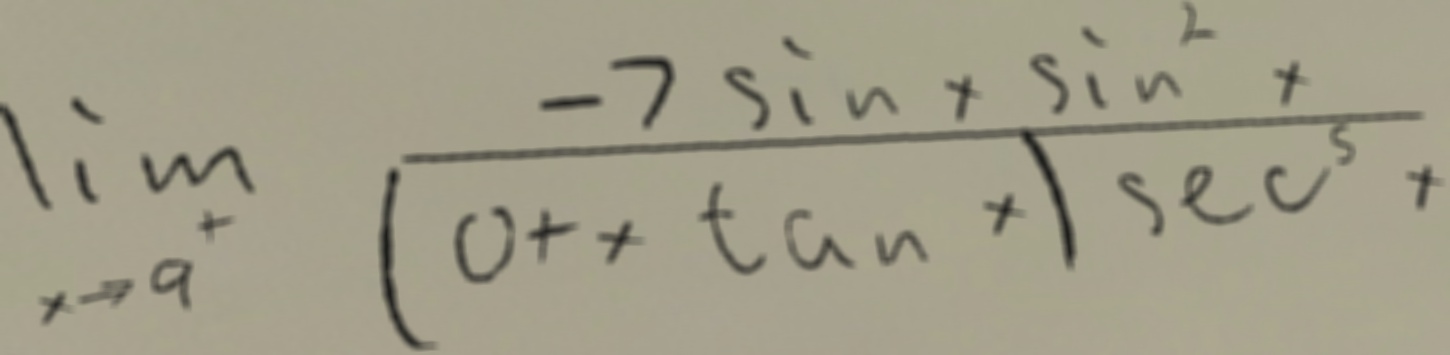 \lim_{x \to 9^+} \frac{-7 \sin x \sin^2 x}{(0 + x \tan x) \sec^5 x}